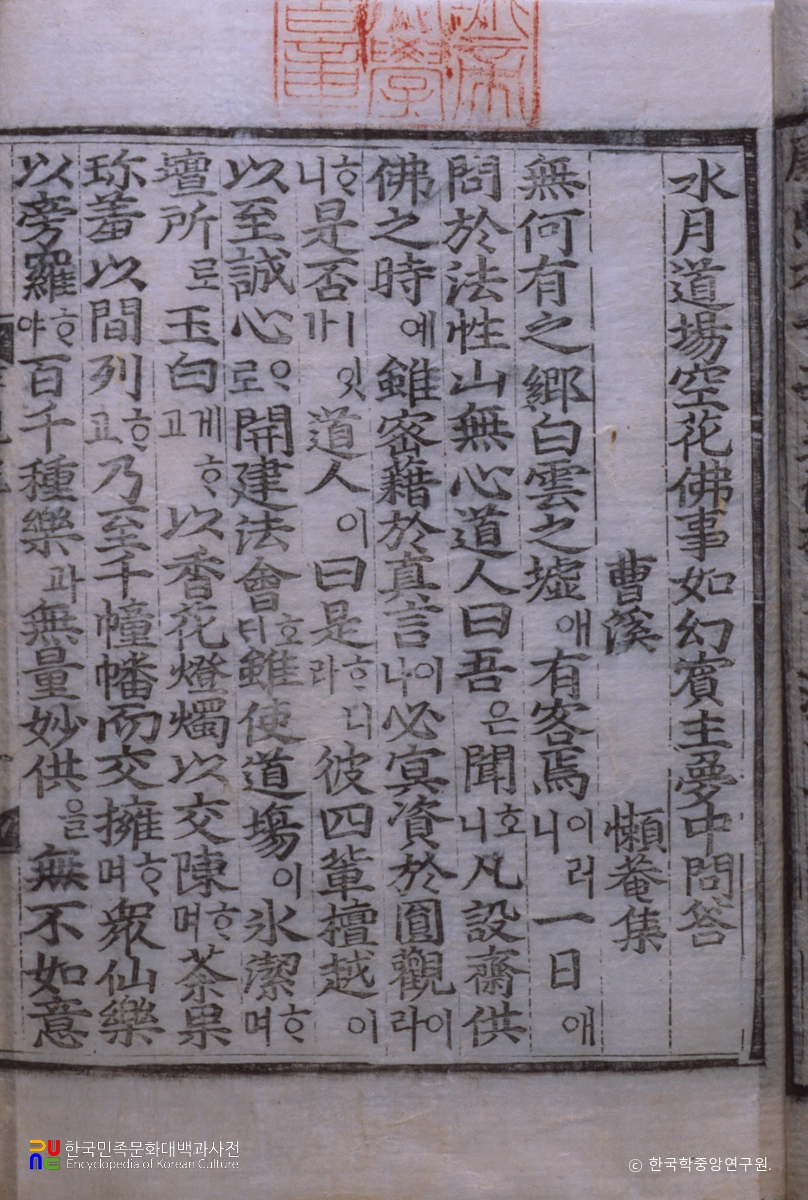 水月道場空花佛事如幻賓主夢中問答
曹溪 懶菴集
無何有之鄕白雲之墟애有客焉이러니一日애
問於法性山無心道人曰吾은聞호니凡設齋供
佛之時예雖密藉於真言이나必冥資於圓觀이라
ᄒᆞ니是否가ㅣ잇道人이曰是ᄒᆞ라디彼四輩檀越이
以至誠心ᄋᆞ로開建法會호ᄃᆡ雖使道場이氷潔ᄒᆞ며
壇所로玉白게ᄒᆞ고以香花燈燭以交陳ᄒᆞ며茶果
珎羞以間列ᄒᆞ고乃至千幢幡而交擁ᄒᆞ며衆仙樂
以旁羅ᄒᆞ야百千種樂과無量妙供을無不如意
한국민족문화대백과사전
Encyclopedia of Korean Culture
© 한국학중앙연구원.